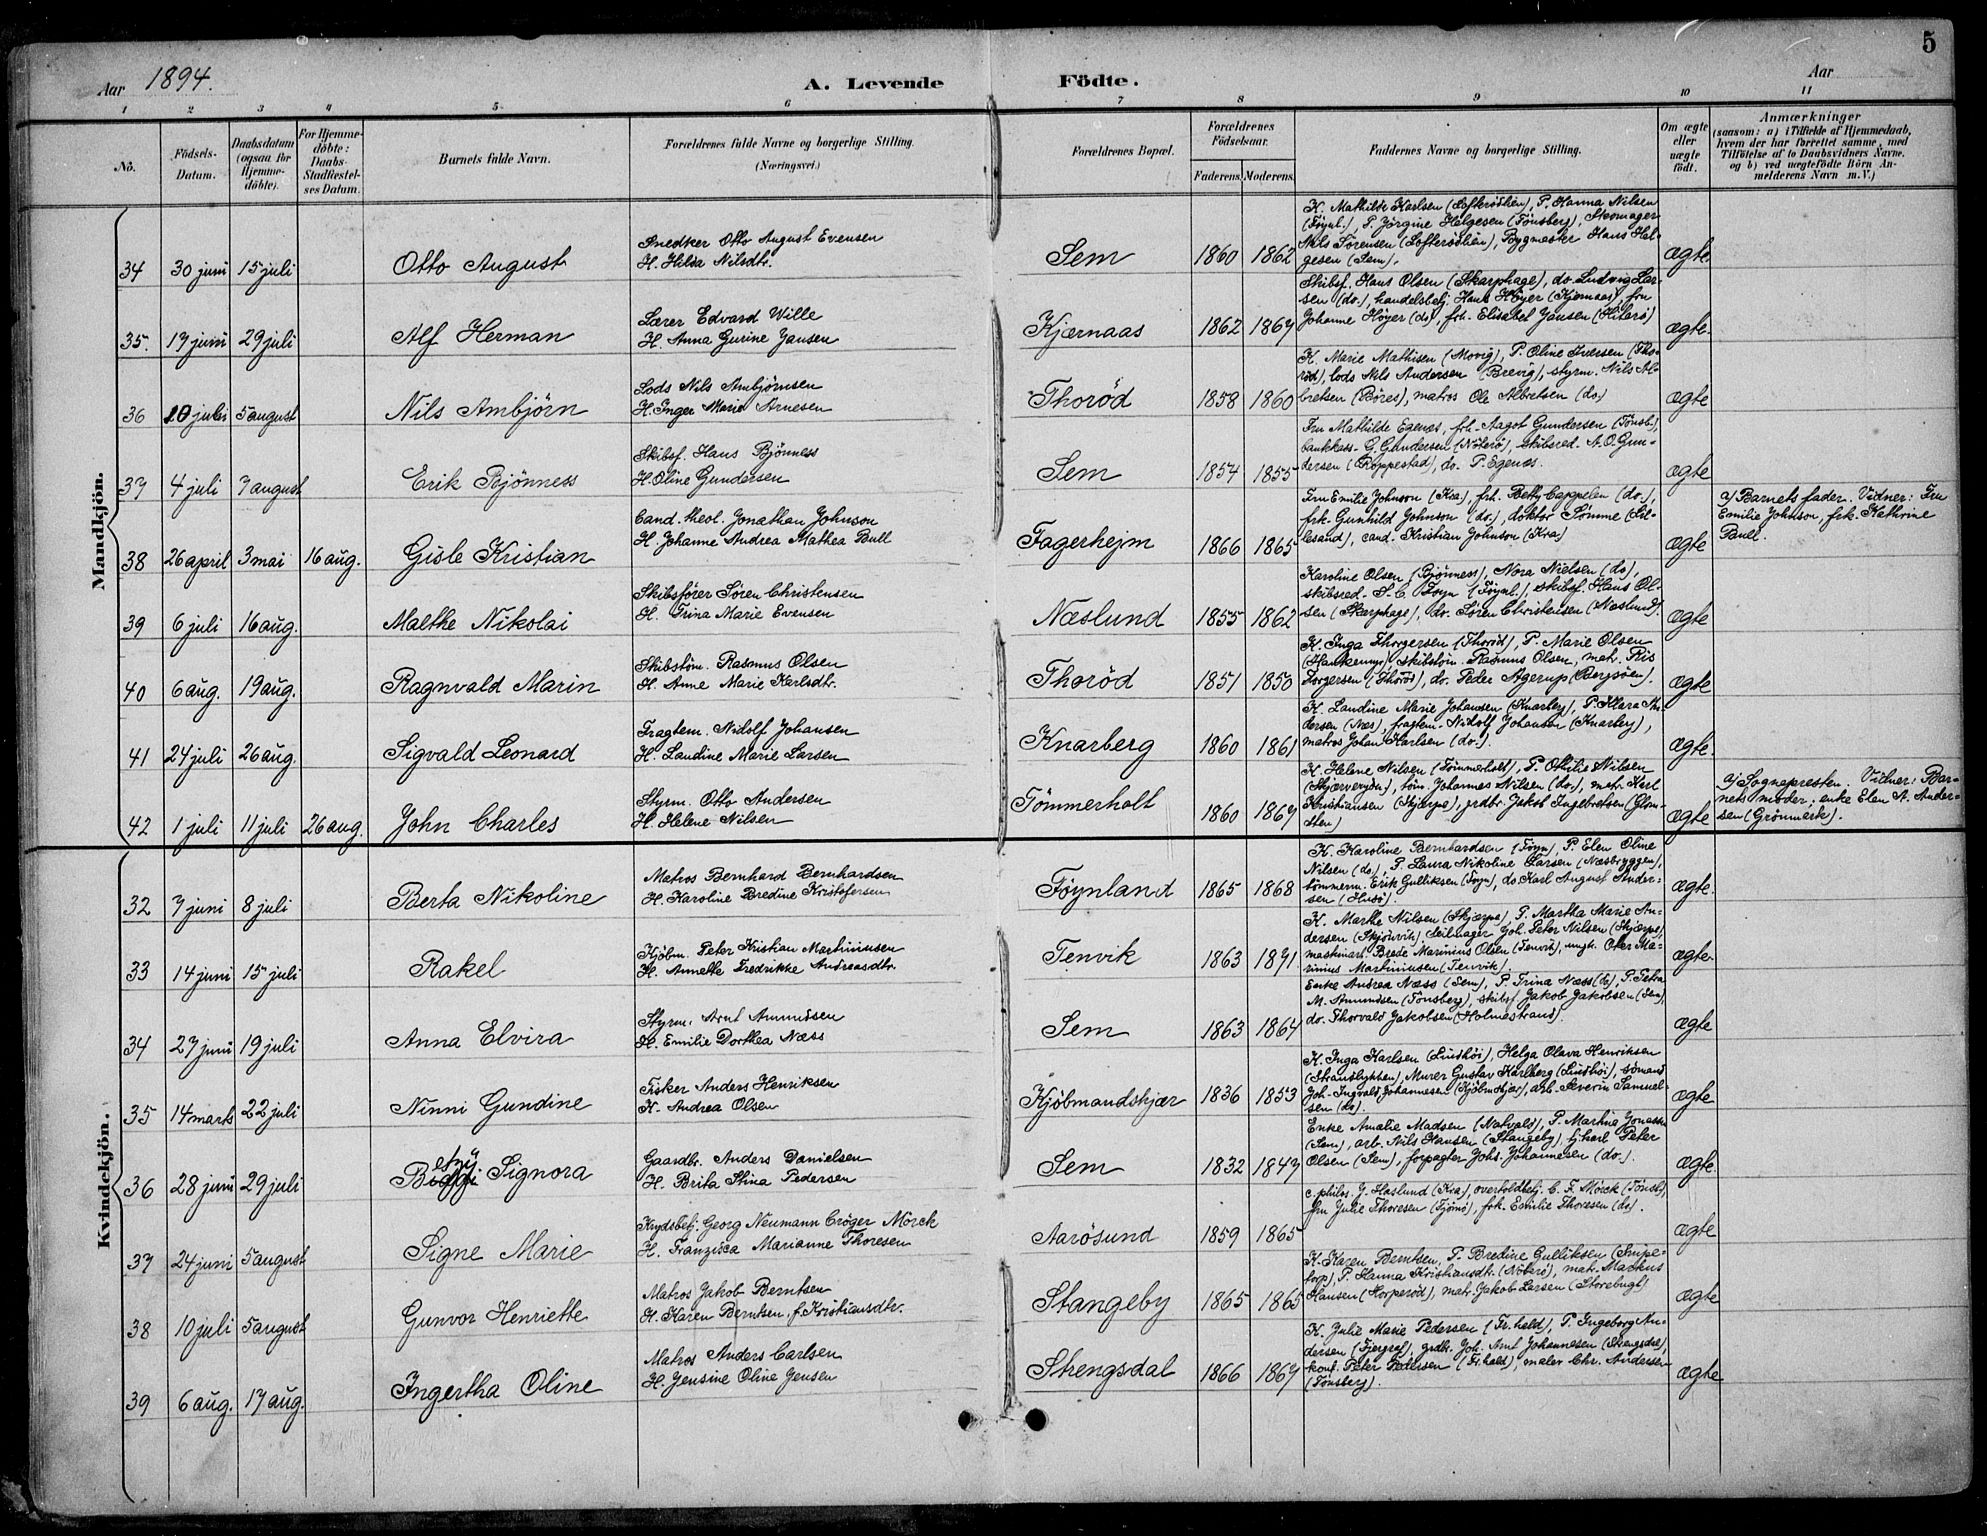 5
Aar 1894.
A. Levende Födte.
Aar
1 2 3 4 5 6 7 8 9 10 11
No.
Födsels-Datum.
Daabsdatum (ogsaa for Hjemme-döbte).
For Hjemme-döbte: Daabs-Stadfæstel-ses Datum.
Barnets fulde Navn.
Forældrenes fulde Navne og borgerlige Stilling. (Næringsvei.)
Forældrenes Bopæl.
Forældrenes Födselsaar.
Faderens. Moderens.
Faddernes Navne og borgerlige Stilling.
Om ægte eller uægte födt.
Anmærkninger
(saasom: a) i Tilfælde af Hjemmedaab, hvem der har forrettet samme, med Tilföielse af to Daabsvidners Navne. og b) ved uægtefödte Börn An-melderens Navn m. V.)
Mandkjön.
34 30 juni 15 juli
Otto August
Snedker Otto August Evensen
H. Hilda Nilsdtr.
Sem 1860 1862
K. Mathilde Karlsen (Lofterödlien), P. Hanna Nilsen
(Föynl.), P. Jörgine Helgesen (Tönsberg), Skomager
Nils Törensen (Lofterödlien), Bygmester Hans Hel-
gesen (Sem).
Ægte
35. 19 juni 29 juli
Alf Herman
Lærer Edvard Wille
H. Anna Gurine Jansen
Kjærnaas 1862 1869
Skibsf. Hans Olsen (Skarphage), do. Ludvig Lar-
sen (do.), handelsbetj. Hans Höyer (Kjærnaas), fru
Johanne Höyer (do), frk. Elisabet Jansen (Hiterö)
Ægte.
36 10 juli 5 august
Nils Ambjörn
Lods Nils Ambjörnsen
H. Inger Marie Arnesen
Thoröd 1858 1860
K. Marie Mathisen (Movig), P. Oline Iversen (Tho-
röd), lods Nils Andersen (Brevig), styrm. Nils Al-
bretsen (Böres), matros Ole Albretsen (do)
Ægte
37 4 juli 7 august
Erik Bjönness
Skibsf. Hans Bjönness
H. Oline Gundersen
Sem 1854 1855
Fru Mathilde Egenæs, frk. Aagot Gundersen (Tönsb.),
bankkass. G. Gundersen (Nöterö), skibsred. A. O. Gun-
dersen (Roppestad), do. P. Egenæs.
Ægte
38 26 april 3 mai 16 aug.
Gisle Kristian
Cand. theol. Jonathan Johnson
H. Johanne Andrea Mathea Bull
Fagerhejm 1866 1865
Fru Emilie Johnson (Kra), frk. Betty Cappelen (do.),
frk. Gunhild Johnson (do.), doktor Sömme (Lil-
lesand), cand. Kristian Johnson (Kra)
Ægte
a) Barnets fader. Vidner: Fru
Emilie Johnson, frk. Kathrine
Buel.
39 6 juli 16 aug.
Malthe Nikolai
Skibsförer Sören Christensen
H. Trina Marie Evensen
Næslund 1855 1862
Karoline Olsen (Bjönness), Nora Nielsen (do),
skibsred. S. C. Foyn (Föynl.), skibsf. Hans Ol-
sen (Skarphage), do. Sören Christensen (Næslund).
Ægte
40 6 aug. 19 aug.
Ragnvald Marin
Skibstöm. Rasmus Olsen
H. Anne Marie Karlsdtr.
Thoröd 1851 1850
K. Inga Thorgersen (Thoröd), P. Marie Olsen
skibstöm. Rasmus Olsen, matr.
Torgersen (Thoröd), do. Peder Agerup (Bergsöen).
Ægte
41 24 juli 26 aug.
Sigvald Leonard
Fragtem. Nidolf Johansen
H. Landine Marie Larsen
Knarberg 1860 1861
K. Landine Marie Johansen (Knarberg), P. Klara An-
dersen (Næs), fragtem. Nidolf Johansen (Knarberg),
matros Johan Karlsen (do.).
Ægte.
42 1 juli 11 juli 26 aug.
John Charles
Styrm. Otto Andersen
H. Helene Nilsen
Tömmerholt 1860 1869
K. Helene Nilsen (Tömmerholt), P. Othilie Nilsen
töm. Johannes Nilsen (do.), matr. Karl
Kristiansen (Skjærpe), grdbr. Jakob Ingebretsen (Glom-
sten)
Ægte
a) Sognepresten. Vidner: Bar-
nets moder, enke Elen A. Ander-
sen (Grönmark).
Kvindekjön.
32 7 juni 8 juli
Berta Nikoline
Matros Bernhard Bernhardsen
H. Karoline Bredine Kristofersen
Föynland 1865 1868
K. Karoline Bernhardsen (Föyn), P. Elen Oline
Nilsen (do), P. Laura Nikoline Larsen (Næsbryggen),
tömmerm. Erik Gulliksen (Foyn), do. Karl August Ander-
sen (Husö).
Ægte.
33 14 juni 15 juli
Rakel
Kjöbm. Peter Kristian Martiniusen
H. Annette Fredrikke Andreasdtr.
Tenvik 1863 1891
K. Marthe Nilsen (Skjærpe), P. Martha Marie An-
dersen (Skjönvik), Seilmager Joh. Peter Nilsen (Skjærpe),
maskinarb. Brede Marinius Olsen (Tenvik), ungk. Oter Ma-
rinius Martiniusen (Tenvik).
Ægte.
34 27 juni 19 juli
Anna Elvira
Styrm. Arnt Amundsen
H. Emilie Dorthea Næss
Sem 1863 1864
Enke Andrea Næss (Sem), P. Trina Næss (do), P. Petra
M. Amundsen (Tönsberg), skibsf. Jakob Jakobsen (Sem),
do. Thorvald Jakobsen (Holmestrand).
Ægte
35 14 marts 22 juli
Ninni Gundine
Fisker Anders Henriksen
H. Andrea Olsen
Kjöbmandskjær 1836 1853
K. Inga Karlsen (Lindhöi), Helga Olava Henriksen
(Strandlykken), Murer Gustav Karlberg (Lindhöi), sömand
Joh. Ingvald Johannesen (Kjöbmskjær), arb. Severin Samuel-
sen (do).
Ægte
36 28 juni 29 juli
Betsy Signora
Gaardbr. Anders Danielsen
H. Brita Stina Pedersen
Sem 1832 1849
Enke Amalie Madsen (Natvald), P. Martine Jonassen
(Sem), arb. Nils Hansen (Stangeby), tj.karl Peter
Olsen (Sem), forpagter Johs. Johannesen (do.).
Ægte
37 24 juni 5 august
Signe Marie
Krydsbetj. Georg Neumann Cröger Mörck
H. Franzisca Marianne Thoresen
Aarösund 1859 1865
c. philos. J. Haslund (Kra), overtoldbetj. C. F. Mörck (Tönsb),
fru Julie Thoresen (Tjömö), frk. Emilie Thoresen (do).
Ægte
38 10 juli 5 august
Gunvor Henriette
Matros Jakob Berntsen
H. Karen Berntsen, f. Kristiansdtr.
Stangeby 1865 1865
K. Karen Berntsen, P. Bredine Gulliksen (Snipe-
torp), P. Hanna Kristiansdtr. (Nöterö), matr. Markus
Hansen (Korperöd), matr. Jakob Larsen (Storebugt)
Ægte
39 6 aug. 17 aug.
Ingertha Oline
Matros Anders Carlsen
H. Jensine Oline Jensen
Strengsdal 1866 1869
K. Julie Marie Pedersen (Fr.hald), P. Ingeborg An-
dersen, grdbr. Joh. Arnt Johannesen (Strengsdal),
kont. Peter Pedersen (Fr.hald), maler Chr. Andersen
(Tönsberg).
Ægte